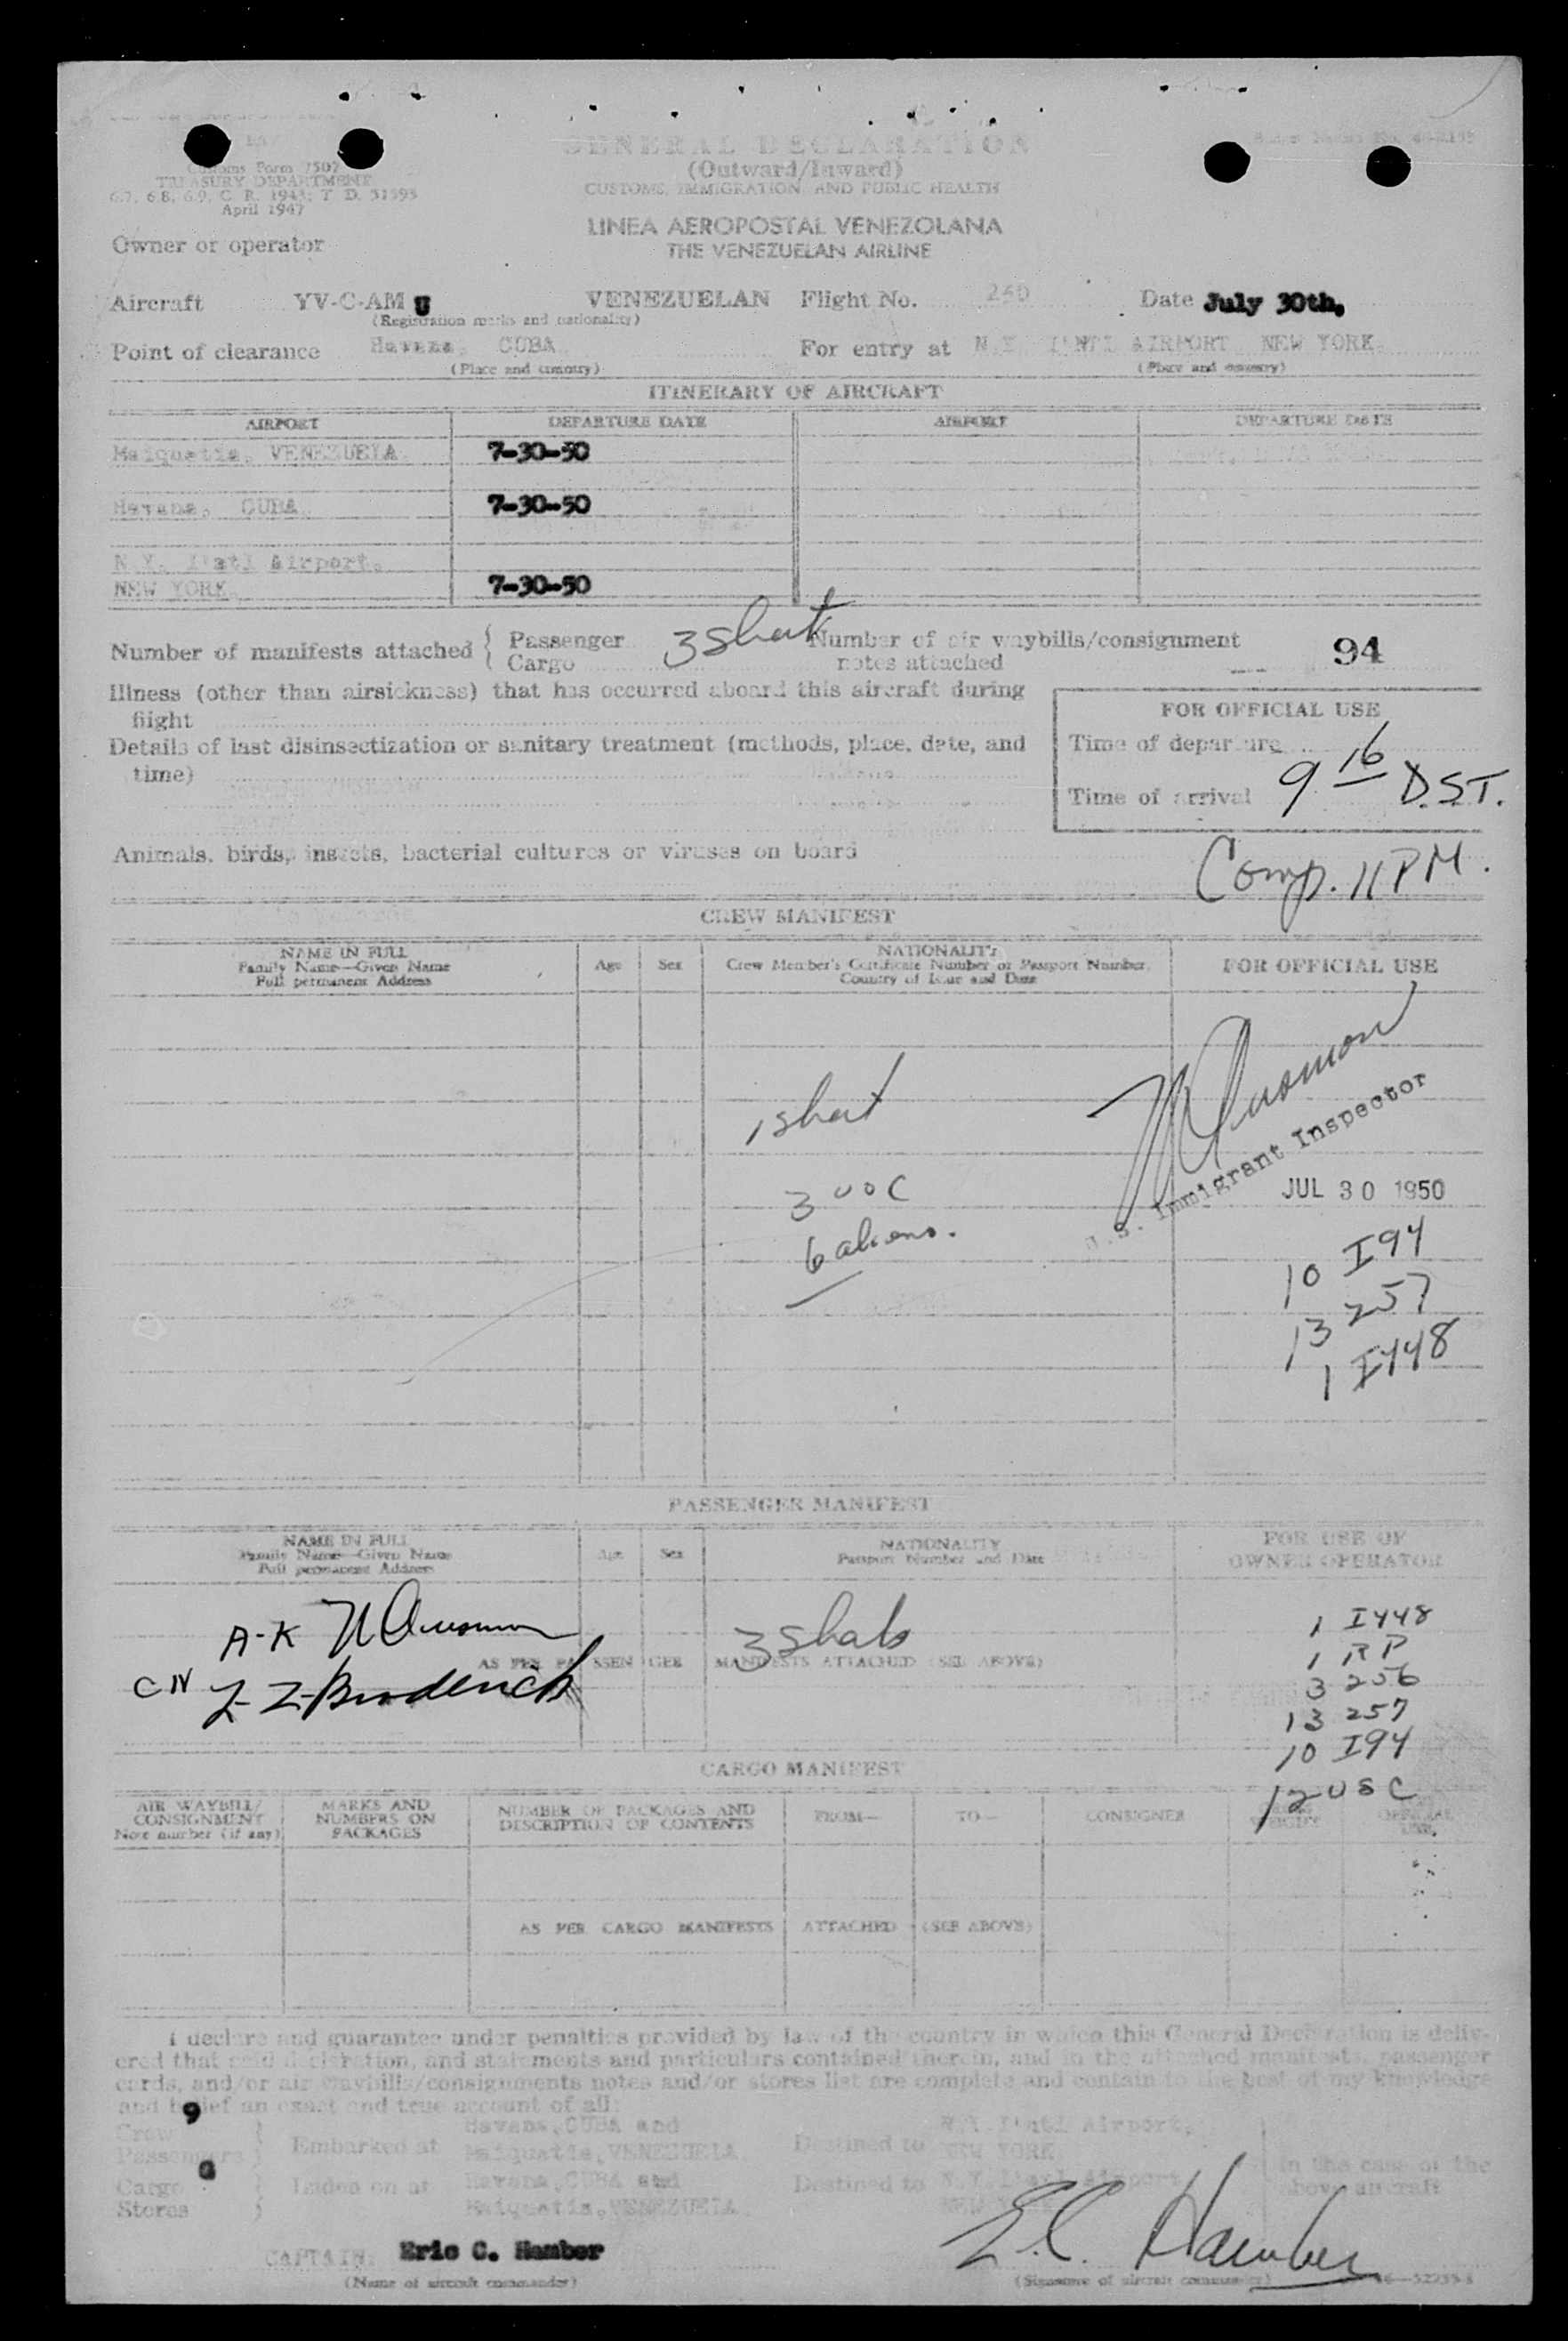 GENERAL DECLARATION
(Outward/Inward)
CUSTOMS, IMMIGRATION, AND PUBLIC HEALTH
Customs Form 7507
TREASURY DEPARTMENT
6.7, 6.8, 6.9, C. R. 1943; T. D. 51593
April 1947
LINEA AEROPOSTAL VENEZOLANA
THE VENEZUELAN AIRLINE
Owner or operator
Aircraft YV-C-AM U VENEZUELAN Flight No. 250 Date July 30th,
(Registration marks and nationality)
Point of clearance Havana, CUBA For entry at N.Y. I'NTL AIRPORT NEW YORK
(Place and country) (Place and country)
ITINERARY OF AIRCRAFT
AIRPORT DEPARTURE DATE AIRPORT DEPARTURE DATE
Maiquetia, VENEZUELA 7-30-50
Havana, CUBA 7-30-50
N.Y. I'ntl Airport,
NEW YORK. 7-30-50
Number of manifests attached { Passenger 3 Sheet Number of air waybills/consignment 94
Cargo notes attached
Illness (other than airsickness) that has occurred aboard this aircraft during
flight
FOR OFFICIAL USE
Details of last disinsectization or sanitary treatment (methods, place, date, and
time)
Time of departure
Time of arrival 9 16 D.S.T.
Animals, birds, insects, bacterial cultures or viruses on board
Comp. 11 PM.
CREW MANIFEST
NAME IN FULL
Family Name—Given Name
Full permanent Address
Age Sex
NATIONALITY
Crew Member's Certificate Number or Passport Number,
Country of Issue and Date
FOR OFFICIAL USE
1 sheet
U.S. Immigrant Inspector
3 USC
JUL 30 1950
6 aliens.
10 I94
13 257
1 I448
PASSENGER MANIFEST
NAME IN FULL
Family Name—Given Name
Full permanent Address
Age Sex
NATIONALITY
Passport Number and Date
FOR USE OF
OWNER OPERATOR
A-K
3 Sheets
1 I448
AS PER PASSENGER MANIFESTS ATTACHED (SEE ABOVE)
1 RP
CN Broderick
3 256
13 257
10 I94
12 USC
CARGO MANIFEST
AIR WAYBILL/
CONSIGNMENT
Note number (if any)
MARKS AND
NUMBERS ON
PACKAGES
NUMBER OF PACKAGES AND
DESCRIPTION OF CONTENTS
FROM— TO— CONSIGNEE
OFFICIAL
USE
AS PER CARGO MANIFESTS ATTACHED (SEE ABOVE)
I declare and guarantee under penalties provided by law of the country in which this General Declaration is deliv-
ered that said declaration, and statements and particulars contained therein, and in the attached manifests, passenger
cards, and/or air waybills/consignments notes and/or stores list are complete and contain to the best of my knowledge
and belief an exact and true account of all:
Crew 9
Passengers
Embarked at Havana, CUBA and
Maiquetia, VENEZUELA
Destined to N.Y. I'ntl Airport,
NEW YORK
Cargo
Stores
Laden on at Havana, CUBA and
Maiquetia, VENEZUELA
Destined to N.Y. I'ntl Airport
NEW YORK
in the case of the
above aircraft
CAPTAIN: Eric C. Hamber
(Name of aircraft commander)
E.C. Hamber
(Signature of aircraft commander)